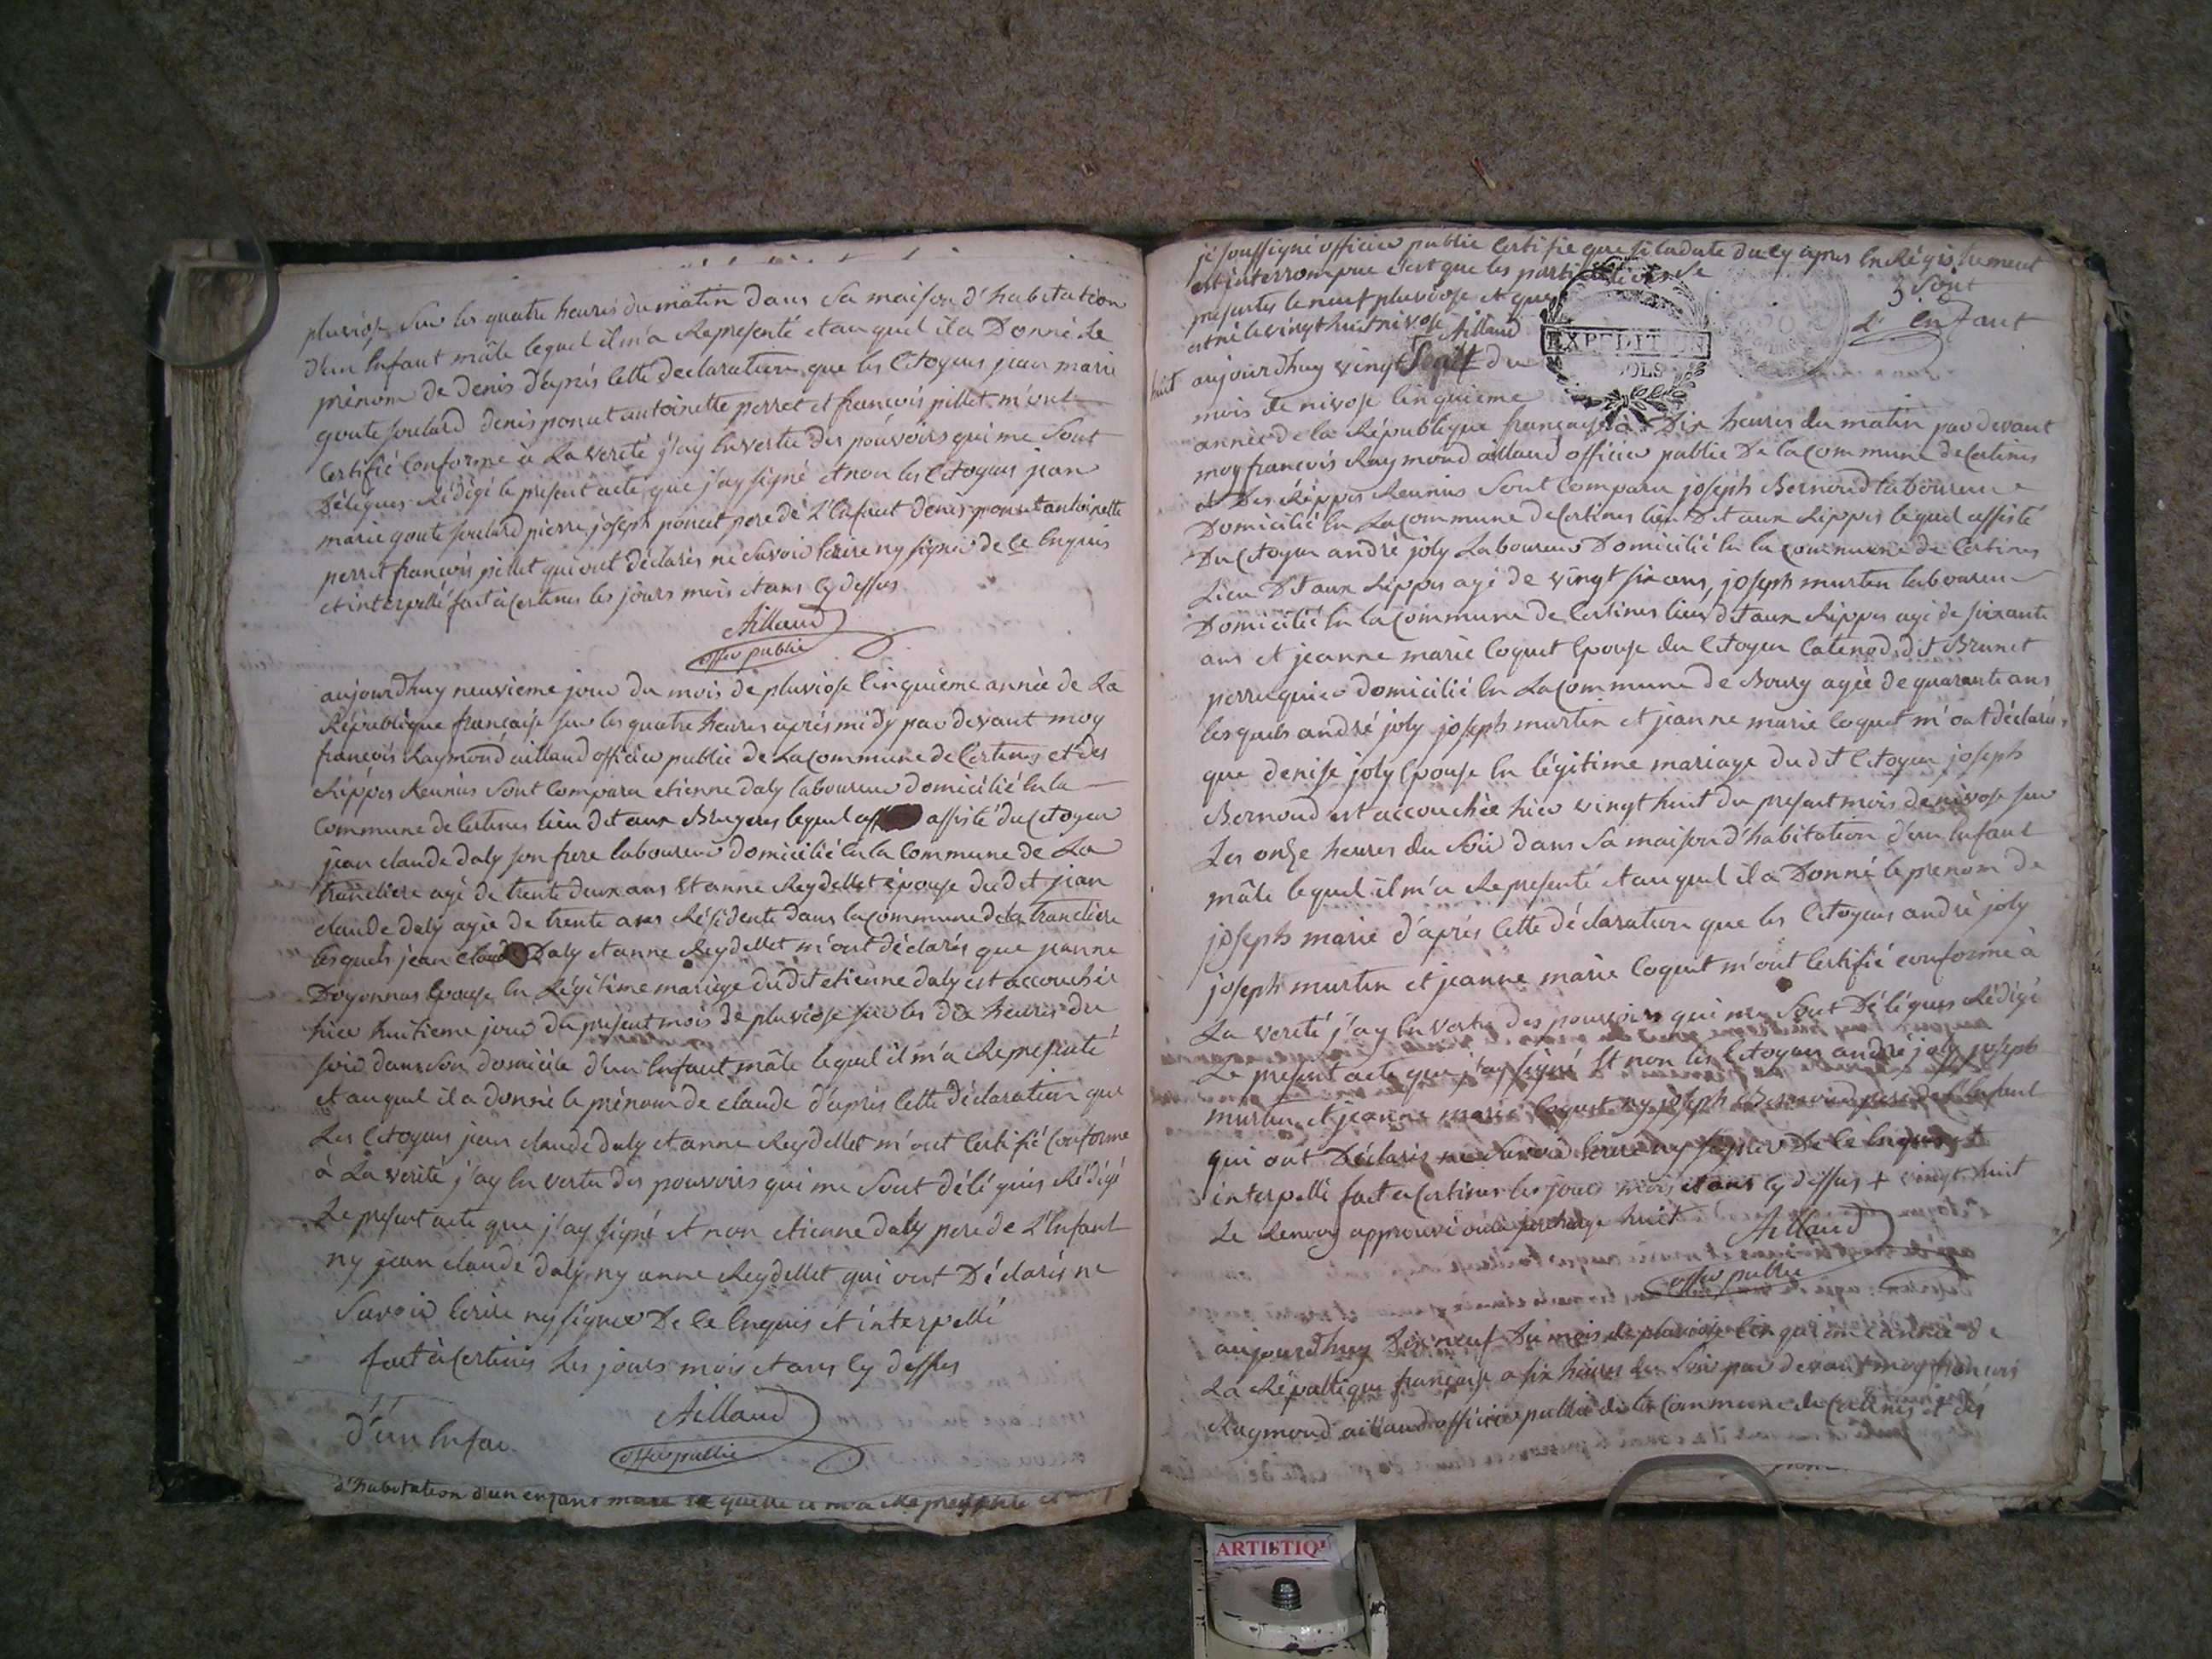 pluviose sur les quatre heures du matin dans sa maison d'habitation
d'un Enfant mâle lequel il m'a Representé et auquel il a Donné Le
prénom de denis d'aprés Cette declaration que les Citoyens jean marie
goute soulard denis poncet antoinette perret et francois pillet m'ont
Certifié Conforme à La verité j'ay En vertu des pouvoirs qui me Sont
Délégués Rédigé le present acte que j'ay signé et non les Citoyens jean
marie goute soulard pierre joseph poncet pere de L'Enfant denis poncet antoinette
perret francois pillet qui ont déclarés ne Savoir Ecrire ny signer de Ce Enquis
et interpellé fait à Certines les jours mois et ans Cy dessus
Aillaud
offier public
aujourdhuy neuvieme jour du mois de pluviose Cinquième année de La
République française sur les quatre heures aprés midy par devant moy
francois Raymond aillaud officier public de La Commune de Certines et des
Rippes Reunies Sont Comparu etienne daly laboureur domicilié En la
Commune de Certines lieu dit aux Bruyeres lequel assisté du Citoyen
jean claude daly son frere laboureur domicilié En la Commune de La
tranclière agé de trente deux ans Et anne Reydellet épouse dudit jean
claude daly agée de trente ans Résidente dans la Commune de la tranclière
lesquels jean claude Daly et anne Reydellet m'ont déclarés que jeanne
Doyonnas Epouse En Légitime mariage dudit etienne daly est accouchée
hier huitieme jour du present mois de pluviose sur les dix heures du
soir dans son domicile d'un Enfant mâle lequel il m'a Representé
et auquel il a donné le prénom de claude d'aprés Cette déclaration que
Les Citoyens jean claude daly et anne Reydellet m'ont Certifié Conforme
à La verité j'ay En vertu des pouvoirs qui me Sont délégués Rédigé
Le present acte que j'ay signé et non etienne daly pere de L'Enfant
ny jean claude daly ny anne Reydellet qui ont Déclarés ne
Savoir Ecrire ny signer De Ce Enquis et interpellé
fait à Certines Les jours mois et ans Cy dessus
Aillaud
offier public
d'un Enfan
d'habitation d'un enfant
je soussigné officier public Certifie que si la date du Cy apres Enrégistrement
est interrompue c'est que les parties Se
3 Sont
presentés le neuf pluviose et que
L'Enfant
est né le vingt huit nivose Aillaud
EXPEDITION
OLS
huit
aujourdhuy vingt Sept du
mois de nivose Cinquieme
année de la République française à Dix heures du matin par devant
moy francois Raymond aillaud officier public De la Commune de Certines
et Des Rippes Reunies Sont Comparu joseph Bernoud laboureur
Domicilié En La Commune de Certines lieu Dit aux Rippes lequel assisté
Du Citoyen andré joly Laboureur Domicilié En la Commune de Certines
Lieu Dit aux Rippes agé de vingt six ans, joseph murtin laboureur
Domicilié En la Commune de Certines lieu dit aux Rippes agé de soixante
ans et jeanne marie Coquet Epouse du Citoyen Catenod dit Brunet
perruquier domicilié En La Commune de Bourg agée de quarante ans
lesquels andré joly joseph murtin et jeanne marie Coquet m'ont déclarés
que denise joly Epouse En légitime mariage dudit Citoyen joseph
Bernoud est accouchée hier vingt huit du present mois de nivose sur
Les onze heures du Soir dans Sa maison d'habitation d'un Enfant
mâle lequel il m'a Representé et auquel il a Donné le prenom de
joseph marie d'aprés Cette déclaration que les Citoyens andré joly
joseph murtin et jeanne marie Coquet m'ont Certifié conforme à
La verité j'ay En vertu des pouvoirs qui me Sont Délégués Rédigé
Le present acte que j'ay signé Et non les Citoyens andré joly joseph
murtin et jeanne marie Coquet ny joseph Bernoud pere de l'Enfant
qui ont Déclarés ne Savoir Ecrire ny signer De Ce Enquis et
interpellé fait à Certines les jours mois et ans Cy dessus + vingt huit
Le Renvoy approuvé huit
Aillaud
offier public
aujourdhuy Dix neuf Du mois de pluviose Cinquieme année de
La République française a six heures du Soir par devant moy francois
Raymond aillaud officier public de la Commune de Certines et des
ARTISTIQ